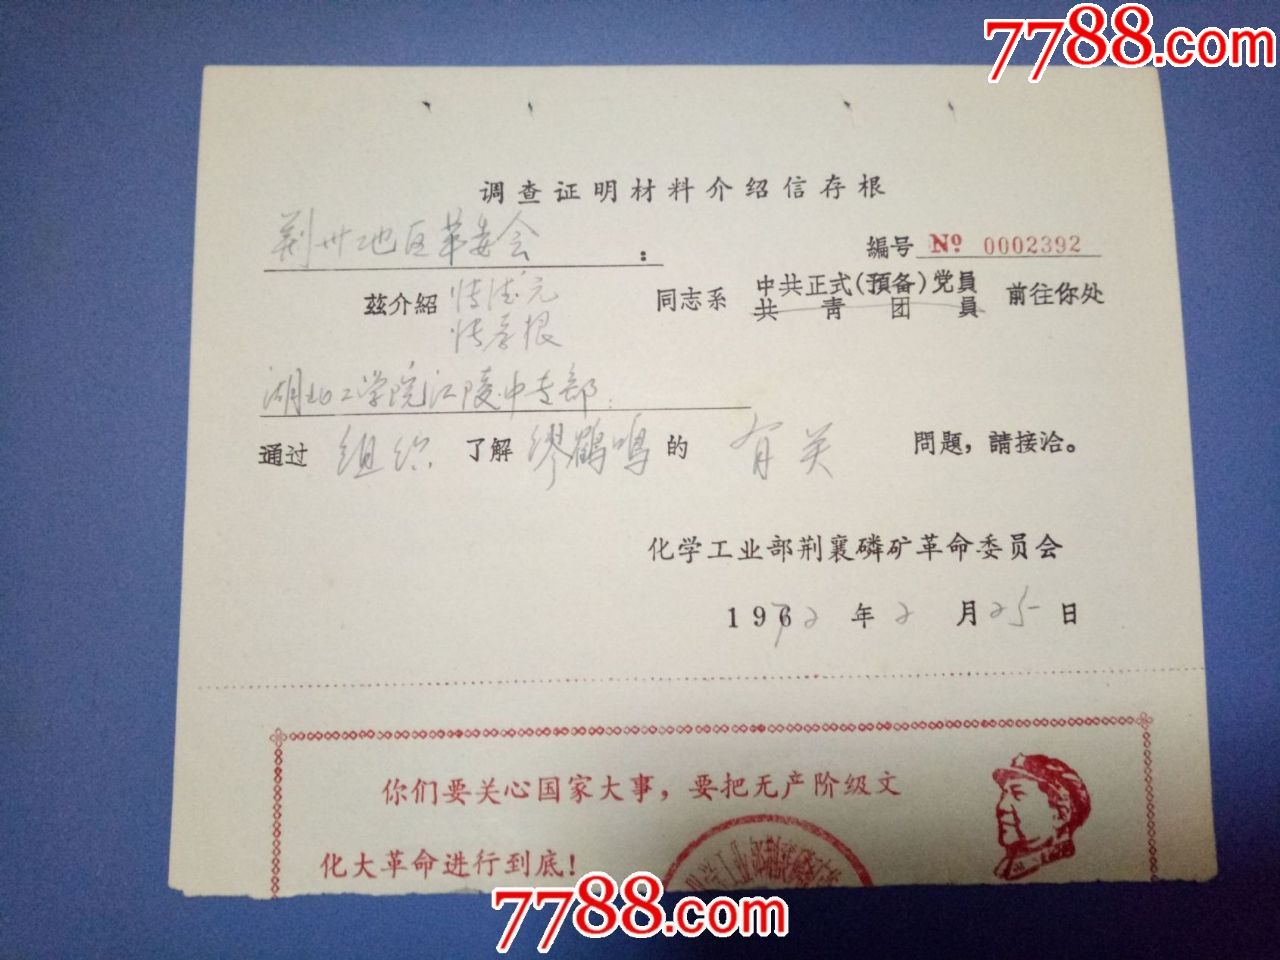 7788.com
调查证明材料介绍信存根
荆州地区革委会：
编号 № 0002392
兹介紹 同志系 中共正式(預备)党員 前往你处
共青团員
湖北工学院江陵中专部
通过 组织 了解 缪鹤鸣 的 有关 問題，請接洽。
化学工业部荆襄磷矿革命委员会
1972 年 2 月 25 日
你们要关心国家大事，要把无产阶级文
化大革命进行到底！
7788.com